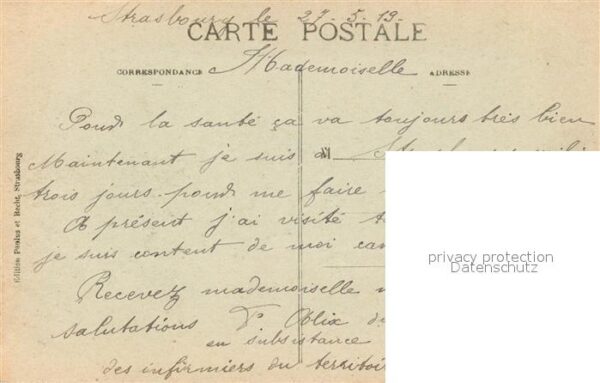 Strasbourg le 27-5-19-
CARTE POSTALE
CORRESPONDANCE
Mademoiselle
ADRESSE
Pour la santé ça va toujours très bien
Maintenant je suis à M Strasbourg
trois jours pour me faire
A présent j'ai visité
je suis content de moi
Recevez mademoiselle
salutations P. Oblix
en subsistance
des infirmiers du territoi
Edition Pordus et Hecht, Strasbourg
privacy protection
Datenschutz